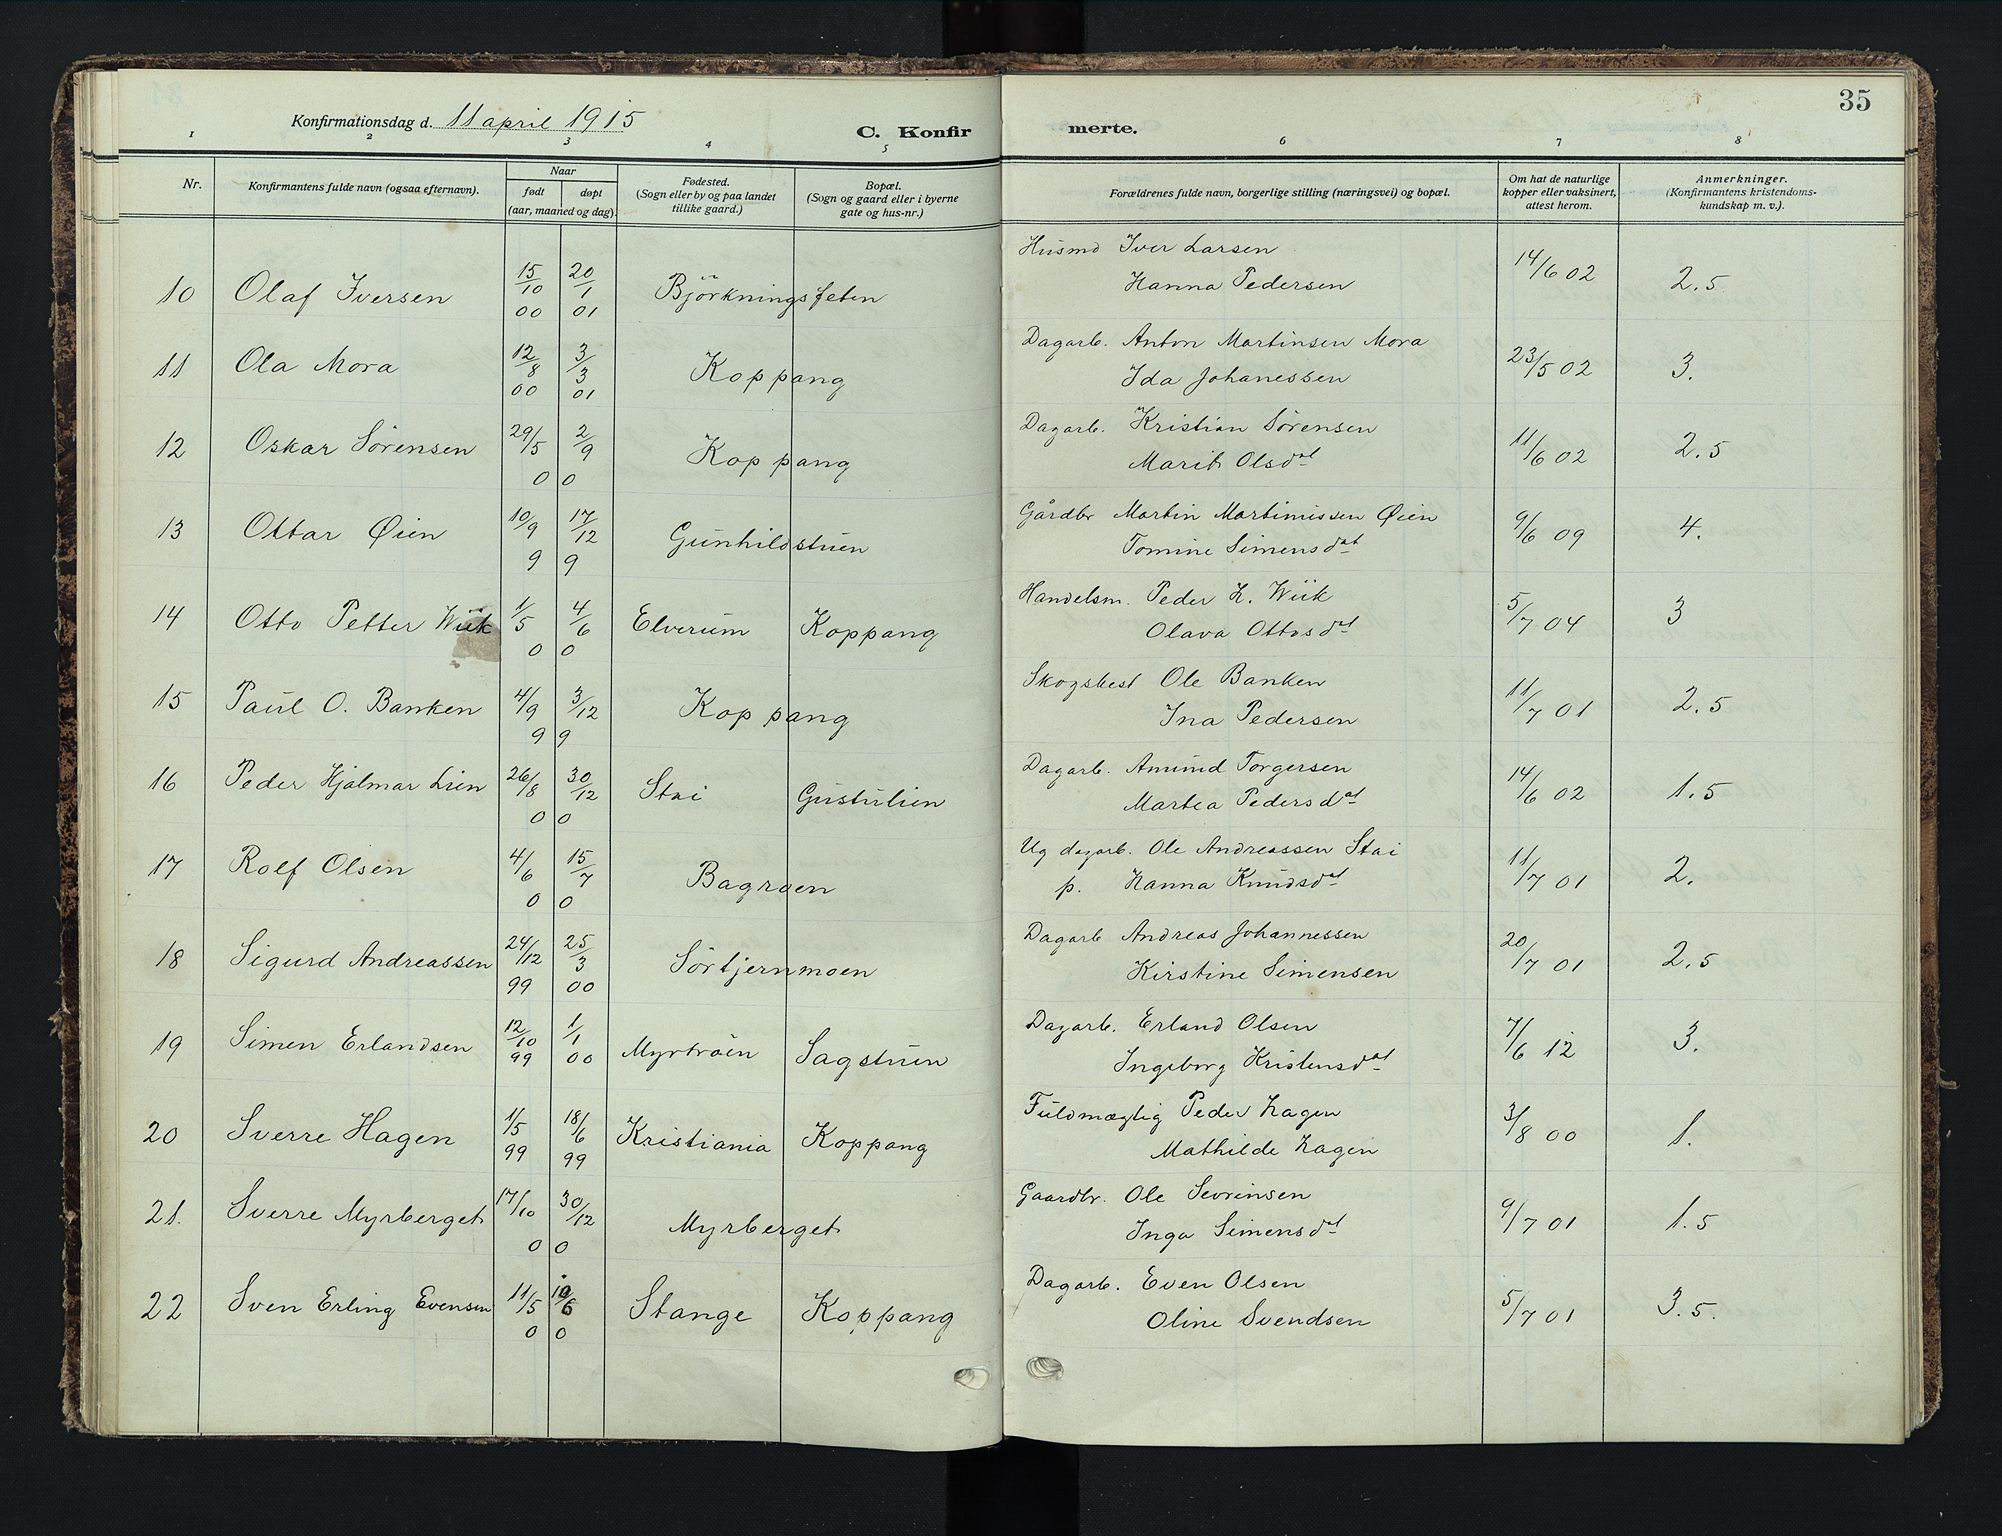 35
Konfirmationsdag d. 11 april 1915
C. Konfir merte.
1 2 3 4 5 6 7 8
Nr.
Konfirmantens fulde navn (ogsaa efternavn).
Naar
født døpt
(aar, maaned og dag).
Fødested.
(Sogn eller by og paa landet
tillike gaard.)
Bopæl.
(Sogn og gaard eller i byerne
gate og hus-nr.)
Forældrenes fulde navn, borgerlige stilling (næringsvei) og bopæl.
Om hat de naturlige
kopper eller vaksinert,
attest herom.
Anmerkninger.
(Konfirmantens kristendoms-
kundskap m. v.).
10 Olaf Iversen 15/10 00 20/1 01 Björkningsfeten Husmd Iver Larsen 14/6 02 2.5
Hanna Pedersen
11 Ola Mora 12/8 00 3/3 01 Koppang Dagarb. Anton Martinsen Mora 23/5 02 3.
Ida Johanessen
12 Oskar Sørensen 29/5 0 2/9 0 Koppang Dagarb. Kristian Sørensen 11/6 02 2.5
Marit Olsdat
13 Ottar Øien 10/9 9 17/12 9 Gunhildstuen Gårdbr Martin Martinissen Øien 9/6 09 4.
Tomine Simensdat
14 Otto Petter Wiik 1/5 0 4/6 0 Elverum Koppang Handelsm. Peder H. Wiik 5/7 04 3
Olava Ottosdat
15 Paul O. Banken 4/9 9 3/12 9 Koppang Skogsbest Ole Banken 11/7 01 2.5
Ina Pedersen
16 Peder Hjalmar Lien 26/8 0 30/12 0 Stai Gustulien Dagarb. Amund Torgersen 14/6 02 1.5
Martea Pedersdat
17 Rolf Olsen 4/6 0 15/7 0 Bagroen Ug dagarb. Ole Andreassen Stai 11/7 01 2.
p. Hanna Knudsdat
18 Sigurd Andreassen 24/12 99 25/3 00 Sörtjernmoen Dagarb Andreas Johannessen 20/7 01 2.5
Kirstine Simensen
19 Simen Erlandsen 12/10 99 1/1 00 Myrtröen Sagstuen Dagarb. Erland Olsen 7/6 12 3.
Ingeborg Kristensdat
20 Sverre Hagen 1/5 99 18/6 99 Kristiania Koppang Fuldmægtig Peder Hagen 3/8 00 1.
Mathilde Hagen
21. Sverre Myrberget 17/10 0 30/12 0 Myrberget Gaardbr. Ole Sevrinsen 9/7 01 1.5
Inga Simensdat
22 Sven Erling Evensen 11/5 0 10/6 0 Stange Koppang Dagarb. Even Olsen 5/7 01 3.5.
Oline Svendsen